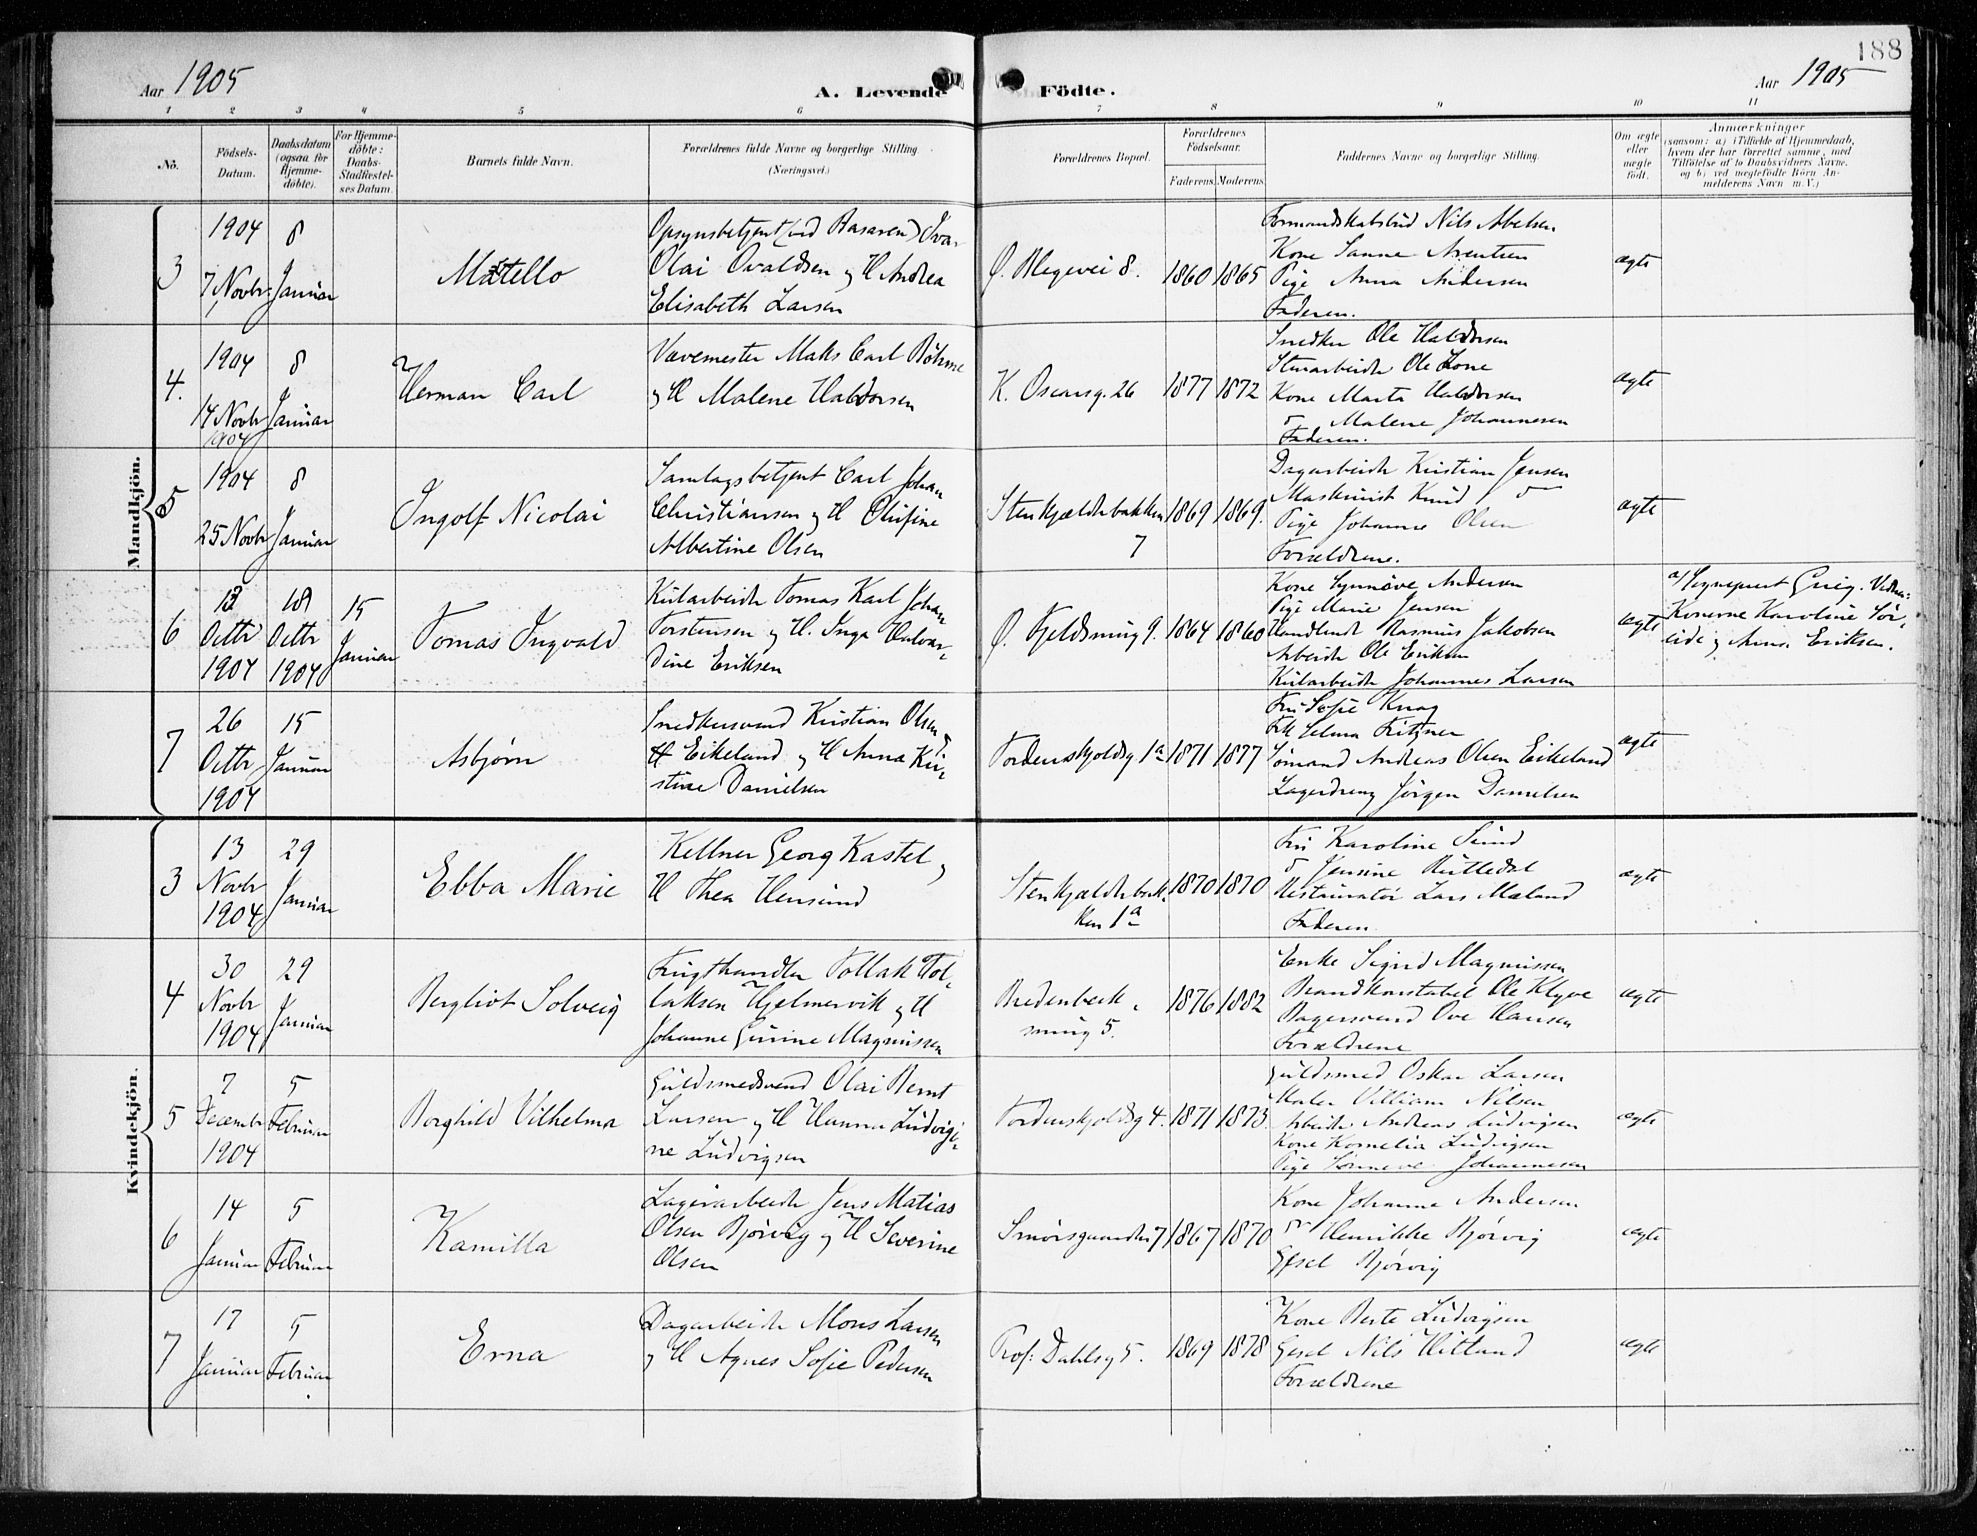 188
Aar 1905
A. Levende Födte.
Aar 1905
1 2 3 4 5 6 7 8 9 10 11
Nö.
Födsels-Datum.
Daabsdatum (ogsaa for Hjemme-döbte).
For Hjemme-döbte: Daabs-Stadfæstel-ses Datum.
Barnets fulde Navn.
Forældrenes fulde Navne og borgerlige Stilling (Næringsvei.)
Forældrenes Bopæl.
Forældrenes Födselsaar.
Faderens. Moderens.
Faddernes Navne og borgerlige Stilling.
Om ægte eller uægte födt.
Anmærkninger
(saasom: a) i Tilfælde af Hjemmedaab,
hvem der har forrettet samme, med
Tilföielse af to Daabsvidners Navne.
og b) ved uægtefödte Börn An-
melderens Navn m. V.)
Mandkjön.
3
1904
7 Novbr
8 Januar
Opsynsbetjent (ved Basaren) Ivar
Olai Ovaldsen og H Andrea
Elisabeth Larsen
Ø. Blegevei 8.
1860 1865
Formandskabsbud Nils Abelsen
Kone Sanne Arentsen
Pige Anna Andersen
Faderen.
ægte
4.
1904
14 Novbr
1904
8 Januar
Herman Carl
Vævemester Maks Carl Böhme
og H Malene Haldorsen
K. Oscarsg. 26
1877 1872
Snedker Ole Haldorsen
Kone Marta Haldorsen
do Malene Johannesen
Faderen.
ægte
5
1904
25 Novbr
8 Januar
Ingolf Nicolai
Samlagsbetjent Carl Johan
Christiansen og H Olufine
Albertine Olsen
Stenkjælderbakken
7
1869 1869.
Dagarbeider Kristian Jensen
Maskinist Knud do
Pige Johanne Olsen
Forældrene.
ægte
6
Octbr
1904
Octbr
1904
15 Januar
Tomas Ingvald
Kularbeider Tomas Karl Johan
Torstensen og H. Inga Halvar-
dine Eriksen
Ø. Fjeldsmug 9.
1864 1860
Kone Synnöve Andersen
Pige Marie Jensen
Handlende Rasmus Jakobsen
Arbeider Ole Eriksen
Kularbeider Johannes Larsen
ægte
a) Sognepræst Grieg. Vidner:
Konerne Karoline Sör-
eide og Anna Eriksen.
7
26
Octbr
1904
15 Januar
Asbjørn
Snedkersvend Kristian Olsen
Eikeland og H Anna Kri-
stine Danielsen
Tordenskjoldsg 1a
1871 1877
Fru Sofie Knag
Frk Selma Fritzner
Sömand Andreas Olsen Eikeland
Lagerdreng Jörgen Danielsen
ægte
Kvindekjön.
3
13
Novbr
1904
29 Januar
Ebba Marie
Kellner Georg Kastel og
H Thea Hensund
Stenkjælderbak-
ken 1a
1870 1870
Fru Karoline Sund
do Jensine Rutledal
Restauratör Lars Mæland
Faderen.
ægte
4
30
Novbr
1904
29 Januar
Bergliot Solveig
Frugthandler Tollak Tol-
laksen Hjelmervik og H
Johanne Gurine Magnussen
Bredenbeck-
smug 5.
1876 1882
Enke Sigrid Magnussen
Brandkonstabel Ole Klyve
Bagersvend Ove Hansen
Forældrene
ægte
5
7
Decembr
1904
5 Februar
Borghild Vilhelma
Guldsmedsvend Olai Bernt
Larsen og H Hanna Ludvigi-
ne Ludvigsen
Tordenskjoldsg 4.
1871 1873
Guldsmed Oskar Larsen
Maler Villiam Nilsen
Arbeider Andreas Ludvigsen
Kone Kornelia Ludvigsen
Pige Johannesen
ægte
6
14 Januar
5 Februar
Kamilla
Lagerarbeider Jens Matias
Olsen Bjørvig og H Severine
Olsen
Smörsgaarden 7
1867 1870
Kone Johanne Andersen
do Henrikke Bjørvig
Gesel Bjørvig
ægte
7
17 Januar
5 Februar
Erna
Dagarbeider Mons Larsen
og H Agnes Sofie Pedersen
Prof: Dahlsg 5.
1869 1878
Kone Berte Ludvigsen
Gesel Nils Hitland
Forældrene
ægte